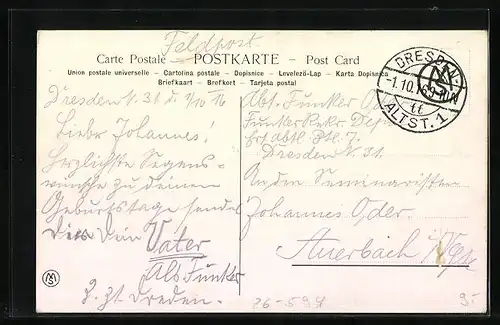 Feldpost
Carte Postale — POSTKARTE — Post Card
Union postale universelle – Cartolina postale – Dopisnice – Levelező-Lap – Karta Dopisnica
Briefkaart – Brefkort – Tarjeta postal
DRESDEN
-1.10.16
ALTST. 1
Dresden N. 31 d. 1/10 16
Lieber Johannes!
Herzlichste Segens-
wünsche zu deinem
Geburtstage sendet
Dir Dein Vater
Als Funker
z. Zt Dresden.
Abt. Funker
Funker Rekr. Dep.
Ers. Abtl. Btl. 7.
Dresden N. 31.
An den Seminaristen
Johannes Oder.
Auerbach
MS
26-594
9.-